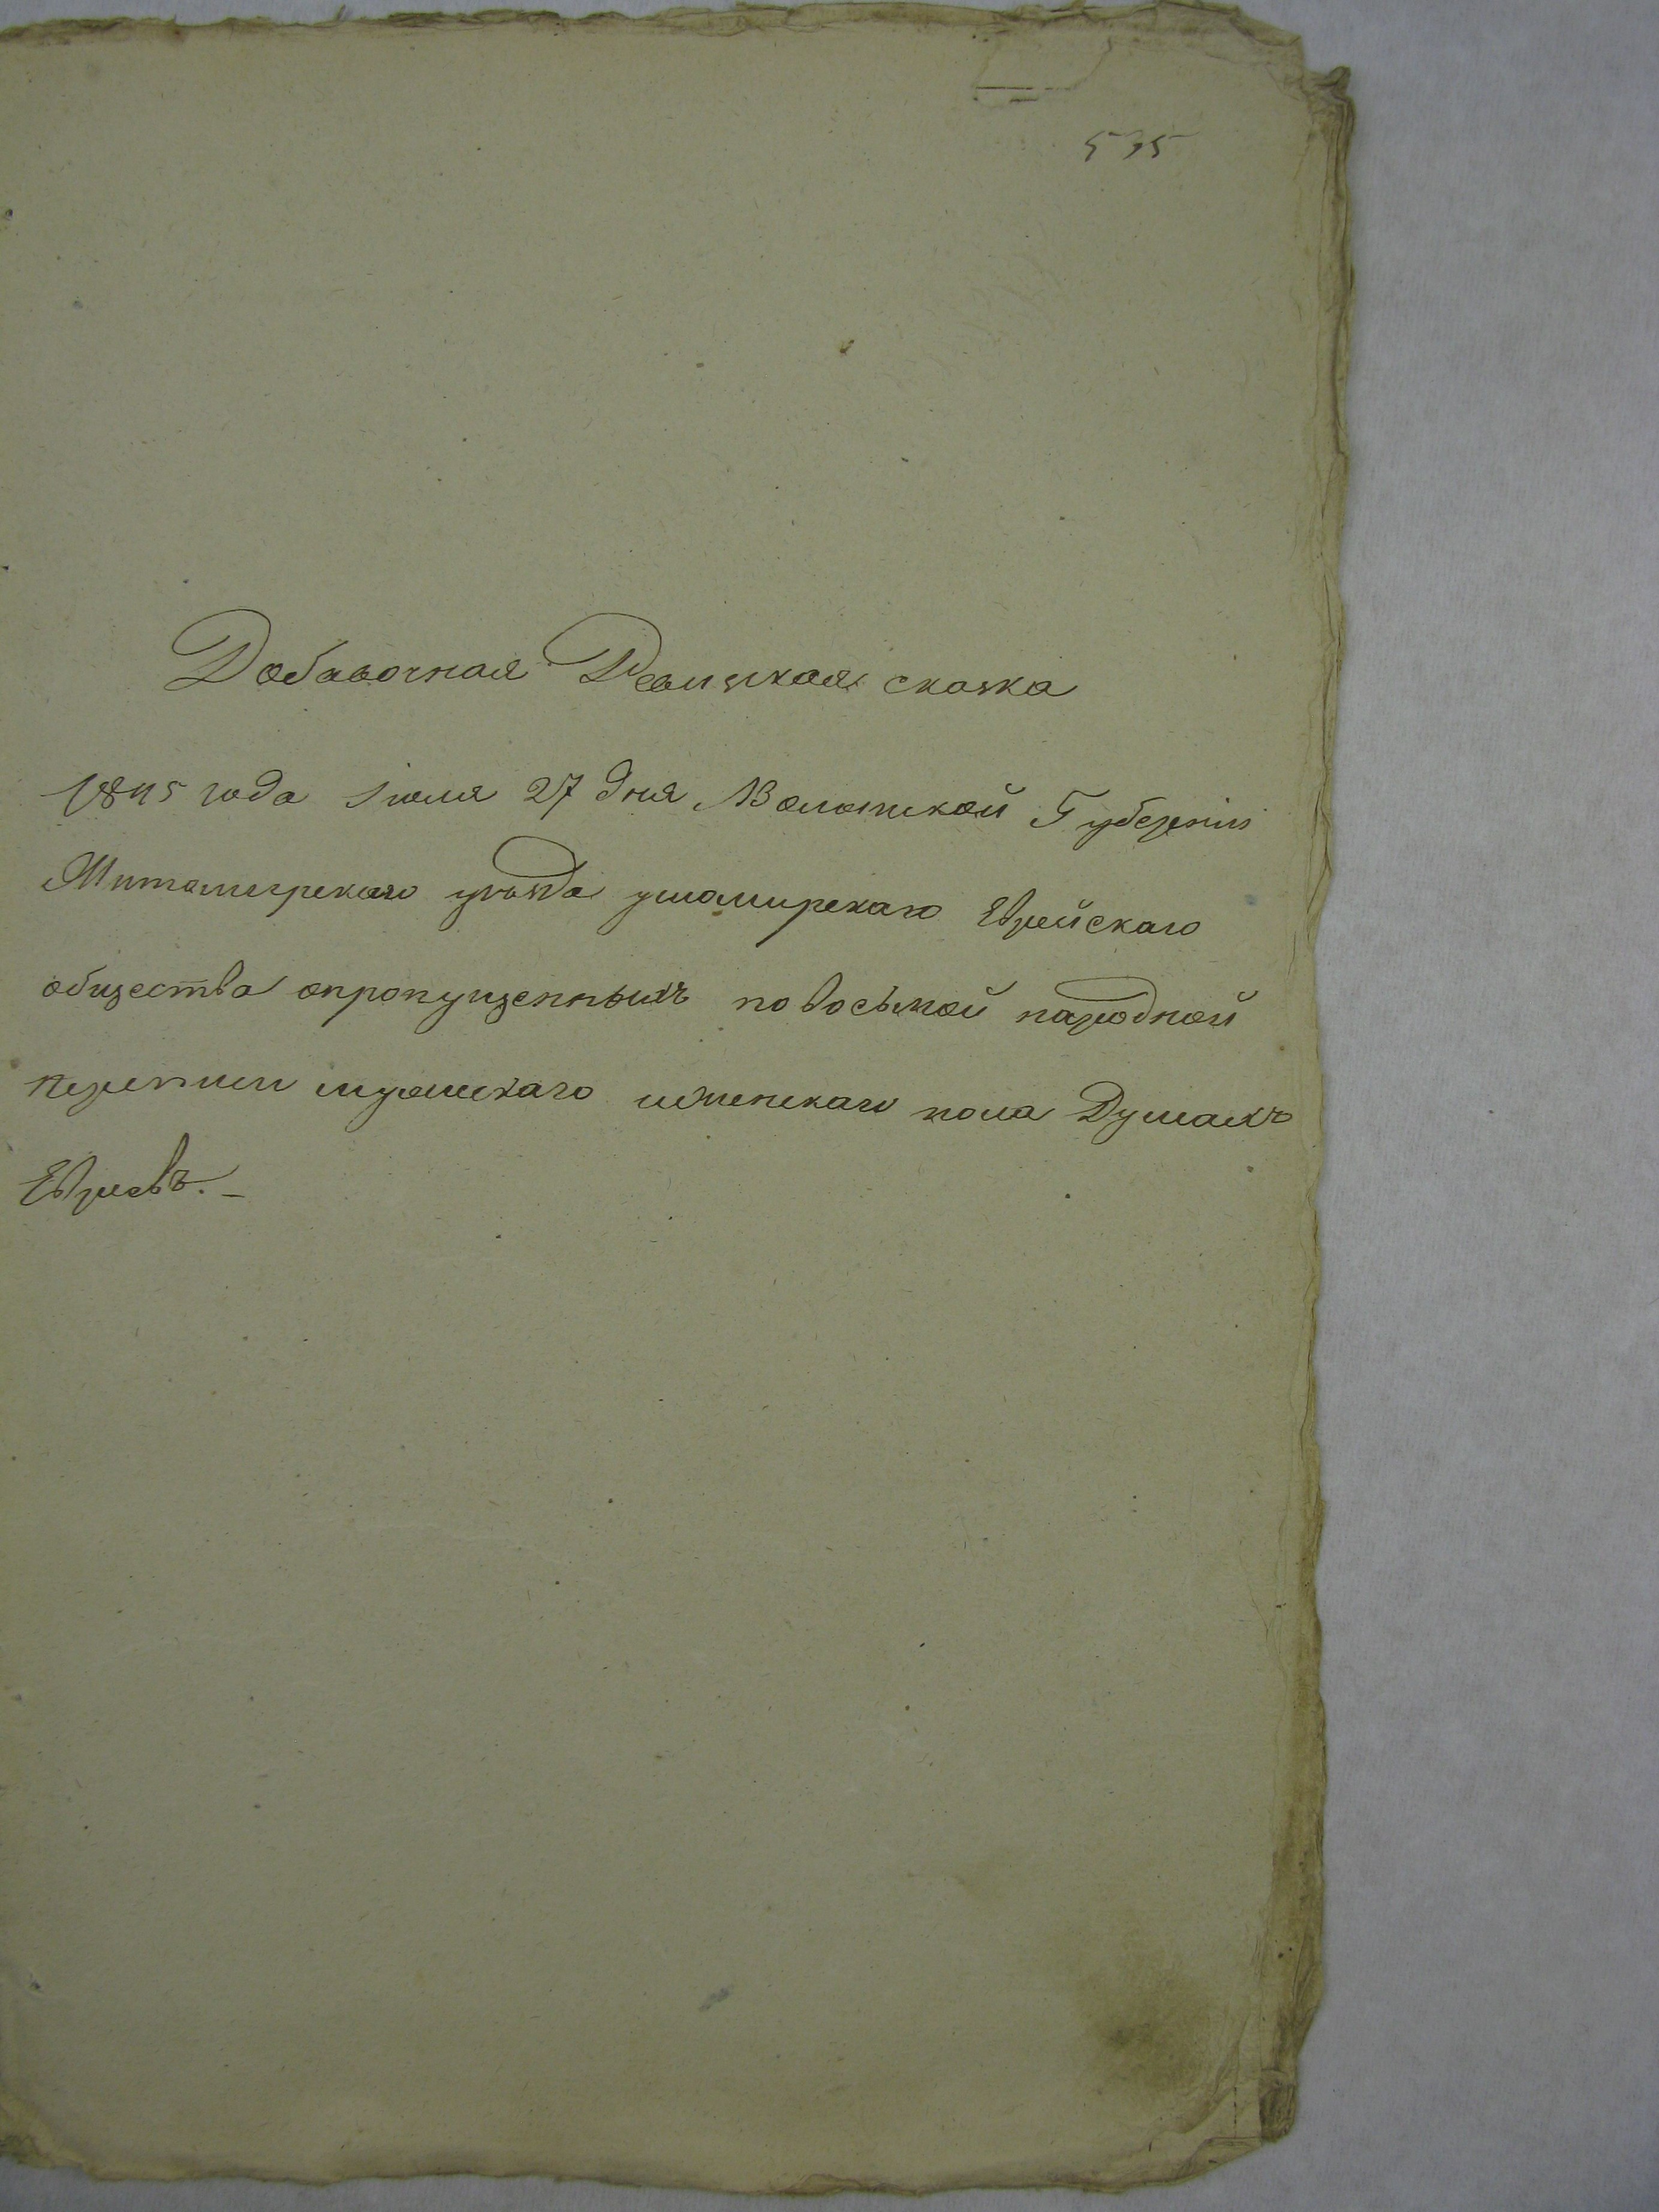 535
Добавочная Ревизкая сказка
1845 года Iюля 27 дня Волынской Губернiи
Житомирскаго уѣзда ушомирскаго Еврейскаго
общества опропущенныхъ по восьмой народной
переписи мужескаго иженскаго пола Душахъ
Евреевъ. –